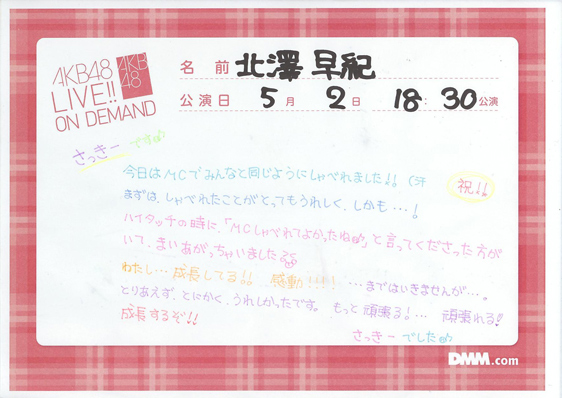 AKB48
LIVE!!
ON DEMAND
AKB
48
名前 北澤 早紀
公演日 5月 2日 18:30公演
さっきーです
今日はMCでみんなと同じようにしゃべれました!! 祝!!
まずは、しゃべれたことがとってもうれしく、しかも…!
ハイタッチの時に、「MCしゃべれてよかったね」と言ってくださった方が
いて、まいあがっちゃいました
わたし…成長してる!! 感動!!!! …まではいきませんが…。
とりあえず、とにかく、うれしかったです。 もっと頑張る!… 頑張れる!
成長するぞ!!
さっきーでした
DMM.com